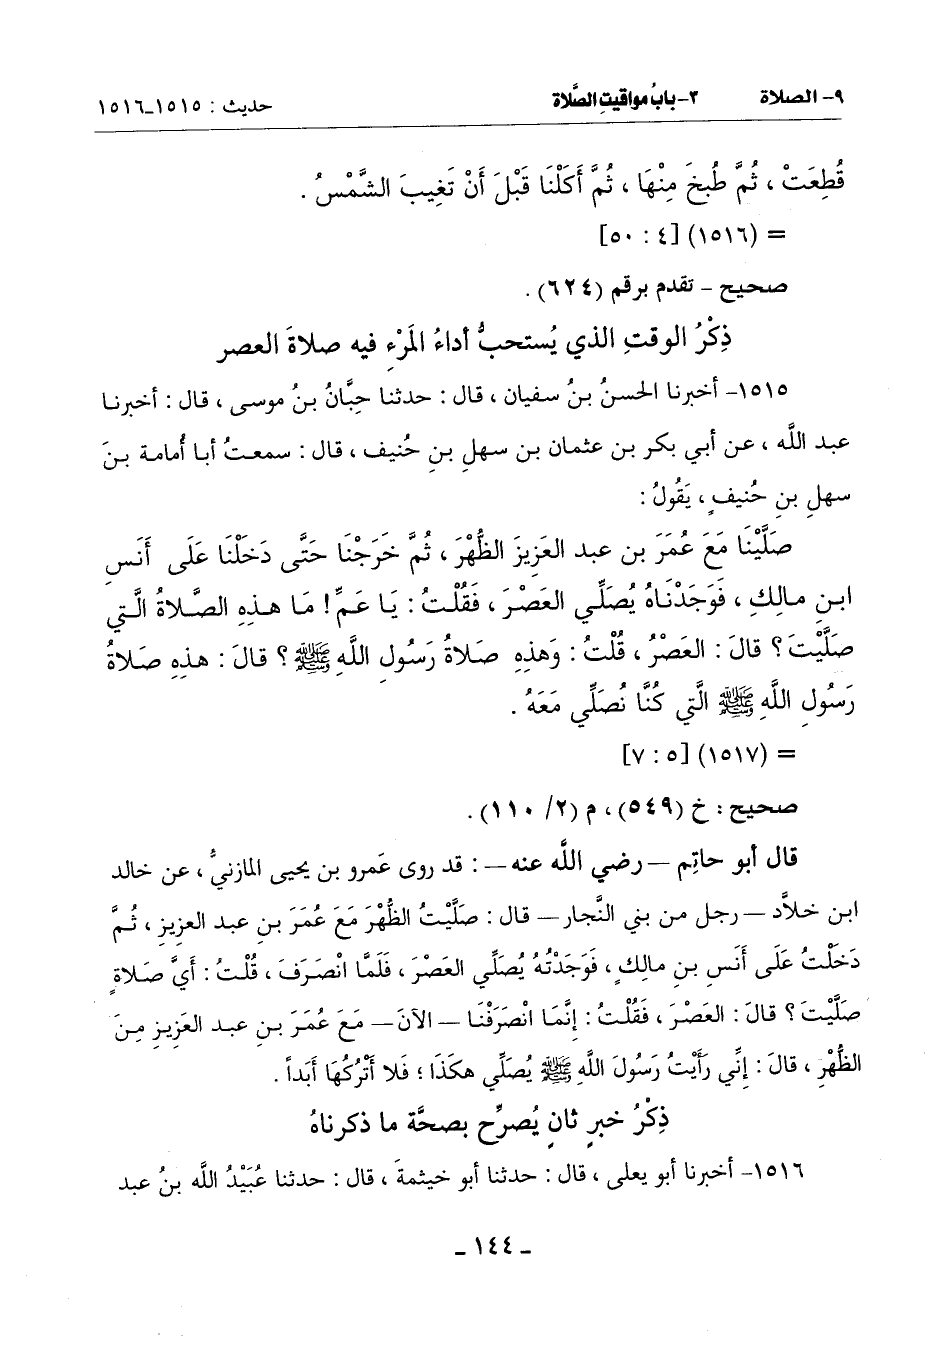 ٩- الصلاة ٣- بابُ مواقيتِ الصَّلاة حديث : ١٥١٥-١٥١٦
قُطِعَتْ ، ثُمَّ طُبِخَ مِنْهَا ، ثُمَّ أَكَلْنَا قَبْلَ أَنْ تَغِيبَ الشَّمْسُ .
= (١٥١٦) [٤ : ٥٠]
صحيح - تقدم برقم (٦٢٤) .
ذِكْرُ الوقتِ الذي يُستحبُّ أداءُ المَرْءِ فيه صلاةَ العصر
١٥١٥- أخبرنا الحسنُ بنُ سفيان ، قال : حدثنا حِبَّانُ بنُ موسى ، قال : أخبرنا
عبد اللَّه ، عن أبي بكر بن عثمان بن سهلِ بنِ حُنيف ، قال : سمعتُ أبا أُمامة بنَ
سهلِ بنِ حُنيفٍ ، يَقُولُ :
صَلَّيْنَا مَعَ عُمَرَ بنِ عبد العَزِيزِ الظُّهْرَ ، ثُمَّ خَرَجْنَا حَتَّى دَخَلْنَا عَلَى أَنَسِ
ابنِ مالِكِ ، فَوَجَدْنَاهُ يُصَلِّي العَصْرَ ، فَقُلْتُ : يَا عَمِّ ! مَا هذِهِ الصَّلاةُ الَّتِي
صَلَّيْتَ ؟ قالَ : العَصْرُ ، قُلْتُ : وَهذِهِ صَلاةُ رَسُولِ اللَّهِ ﷺ ؟ قالَ : هذِهِ صَلاةُ
رَسُولِ اللَّهِ ﷺ الَّتِي كُنَّا نُصَلِّي مَعَهُ .
= (١٥١٧) [٥ : ٧]
صحيح : خ (٥٤٩) ، م (٢/ ١١٠) .
قال أبو حاتِم — رضي اللَّه عنه — : قد روى عَمرو بن يحيى المازنيُّ ، عن خالد
ابن خلاَّد — رجل من بني النَّجار — قال : صَلَّيْتُ الظُّهْرَ مَعَ عُمَرَ بنِ عبد العزيز ، ثُمَّ
دَخَلْتُ عَلَى أَنَسِ بنِ مالِكٍ ، فَوَجَدْتُهُ يُصَلِّي العَصْرَ ، فَلَمَّا انْصَرَفَ ، قُلْتُ : أَيَّ صَلاةٍ
صَلَّيْتَ ؟ قالَ : العَصْرَ ، فَقُلْتُ : إِنَّمَا انْصَرَفْنَا — الآنَ — مَعَ عُمَرَ بنِ عبد العَزِيزِ مِنَ
الظُّهْرِ ، قالَ : إِنِّي رَأَيْتُ رَسُولَ اللَّهِ ﷺ يُصَلِّي هكَذَا ؛ فَلا أَتْرُكُهَا أَبَداً .
ذِكْرُ خبرٍ ثانٍ يُصرِّح بصحَّة ما ذكرناهُ
١٥١٦- أخبرنا أبو يعلى ، قال : حدثنا أبو خيثمةَ ، قال : حدثنا عُبَيْدُ اللَّه بنُ عبد
- ١٤٤ -